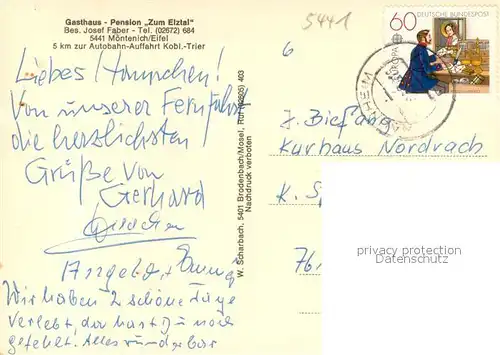 Gasthaus - Pension „Zum Elztal"
Bes. Josef Faber - Tel. (02672) 684
5441 Möntenich/Eifel
5 km zur Autobahn-Auffahrt Kobl.-Trier
5441
60 DEUTSCHE BUNDESPOST
EUROPA
6
Liebes Hannchen!
Von unserer Fernfahrt
die herzlichsten
Grüße von
Gerhard
Wir haben 2 schöne Tage
verlebt, du hast nur noch
gefehlt. Alles wunderbar
W. Scharbach, 5401 Brodenbach/Mosel, Ruf (02605) 403
Nachdruck verboten
Kurhaus Nordrach
K. S
76
privacy protection
Datenschutz